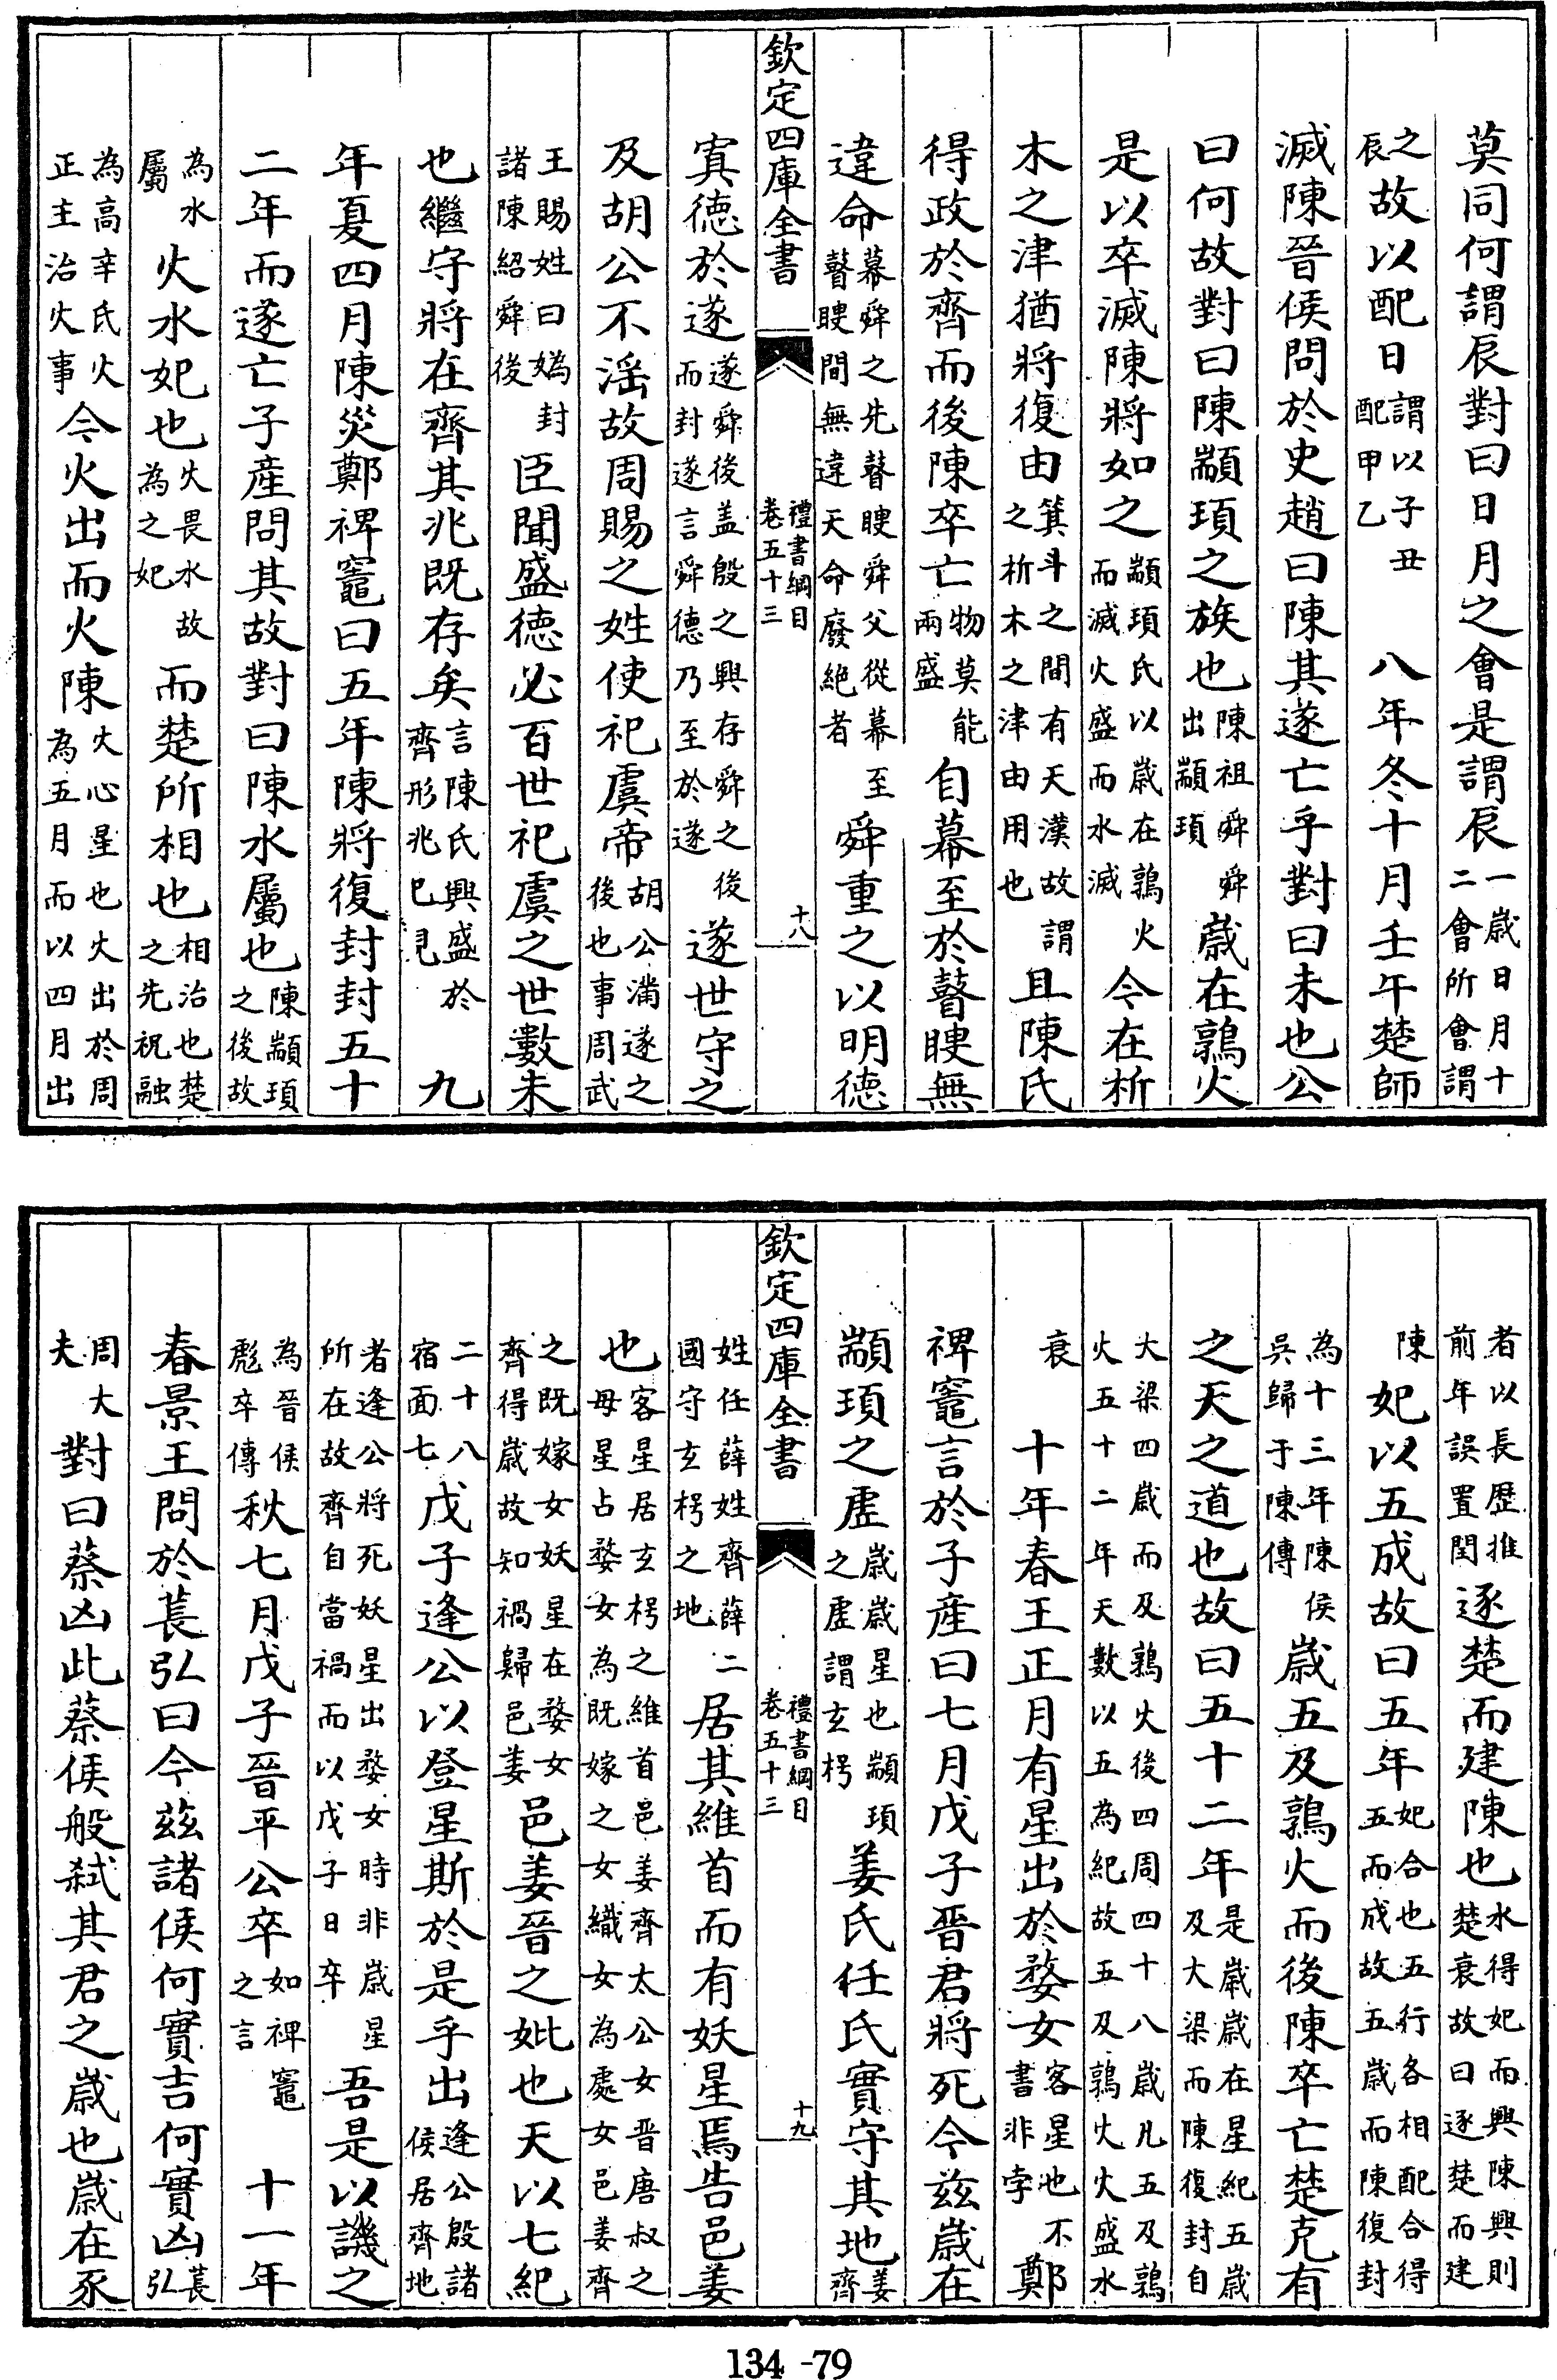 莫同何謂辰對曰日月之會是謂辰一歲日月十二會所會謂
之辰故以配日謂以子丑配甲乙八年冬十月壬午楚師
滅陳晉侯問於史趙曰陳其遂亡乎對曰未也公
曰何故對曰陳顓頊之族也陳祖舜舜出顓頊歲在鶉火
是以卒滅陳將如之顓頊氏以歲在鶉火而滅火盛而水滅今在析
木之津猶將復由箕斗之間有天漢故謂之析木之津由用也且陳氏
得政於齊而後陳卒亡物莫能兩盛自幕至於瞽瞍無
違命幕舜之先瞽瞍舜父從幕至瞽瞍間無違天命廢絶者舜重之以明德
欽定四庫全書 禮書綱目卷五十三 十八
寘德於遂遂舜後盖殷之興存舜之後而封遂言舜德乃至於遂遂世守之
及胡公不淫故周賜之姓使祀虞帝胡公滿遂之後也事周武
王賜姓曰媯封諸陳紹舜後臣聞盛德必百世祀虞之世數未
也繼守將在齊其兆既存矣言陳氏興盛於齊形兆已見九
年夏四月陳災鄭禆竈曰五年陳將復封封五十
二年而遂亡子產問其故對曰陳水屬也陳顓頊之後故
為水屬火水妃也火畏水故為之妃而楚所相也相治也楚之先祝融
為高辛氏火正主治火事今火出而火陳火心星也火出於周為五月而以四月出
者以長歷推前年誤置閏逐楚而建陳也水得妃而興陳興則楚衰故曰逐楚而建
陳妃以五成故曰五年妃合也五行各相配合得五而成故五歲而陳復封
為十三年陳侯吳歸于陳傳歲五及鶉火而後陳卒亡楚克有
之天之道也故曰五十二年是歲歲在星紀五歲及大梁而陳復封自
大梁四歲而及鶉火後四周四十八歲凡五及鶉火五十二年天數以五為紀故五及鶉火火盛水
衰十年春王正月有星出於婺女客星也不書非孛鄭
禆竈言於子產曰七月戊子晉君將死今茲歲在
顓頊之虛歲歲星也顓頊之虛謂玄枵姜氏任氏實守其地姜齊
欽定四庫全書 禮書綱目卷五十三 十九
姓任薛姓齊薛二國守玄枵之地居其維首而有妖星焉告邑姜
也客星居玄枵之維首邑姜齊太公女晉唐叔之母星占婺女為既嫁之女織女為處女邑姜齊
之既嫁女妖星在婺女齊得歲故知禍歸邑姜邑姜晉之妣也天以七紀
二十八宿面七戊子逢公以登星斯於是乎出逢公殷諸侯居齊地
者逢公將死妖星出婺女時非歲星所在故齊自當禍而以戊子日卒吾是以譏之
為晉侯彪卒傳秋七月戊子晉平公卒如禆竈之言十一年
春景王問於萇弘曰今茲諸侯何實吉何實凶萇弘
周大夫對曰蔡凶此蔡侯般弒其君之歲也歲在豕
134-79